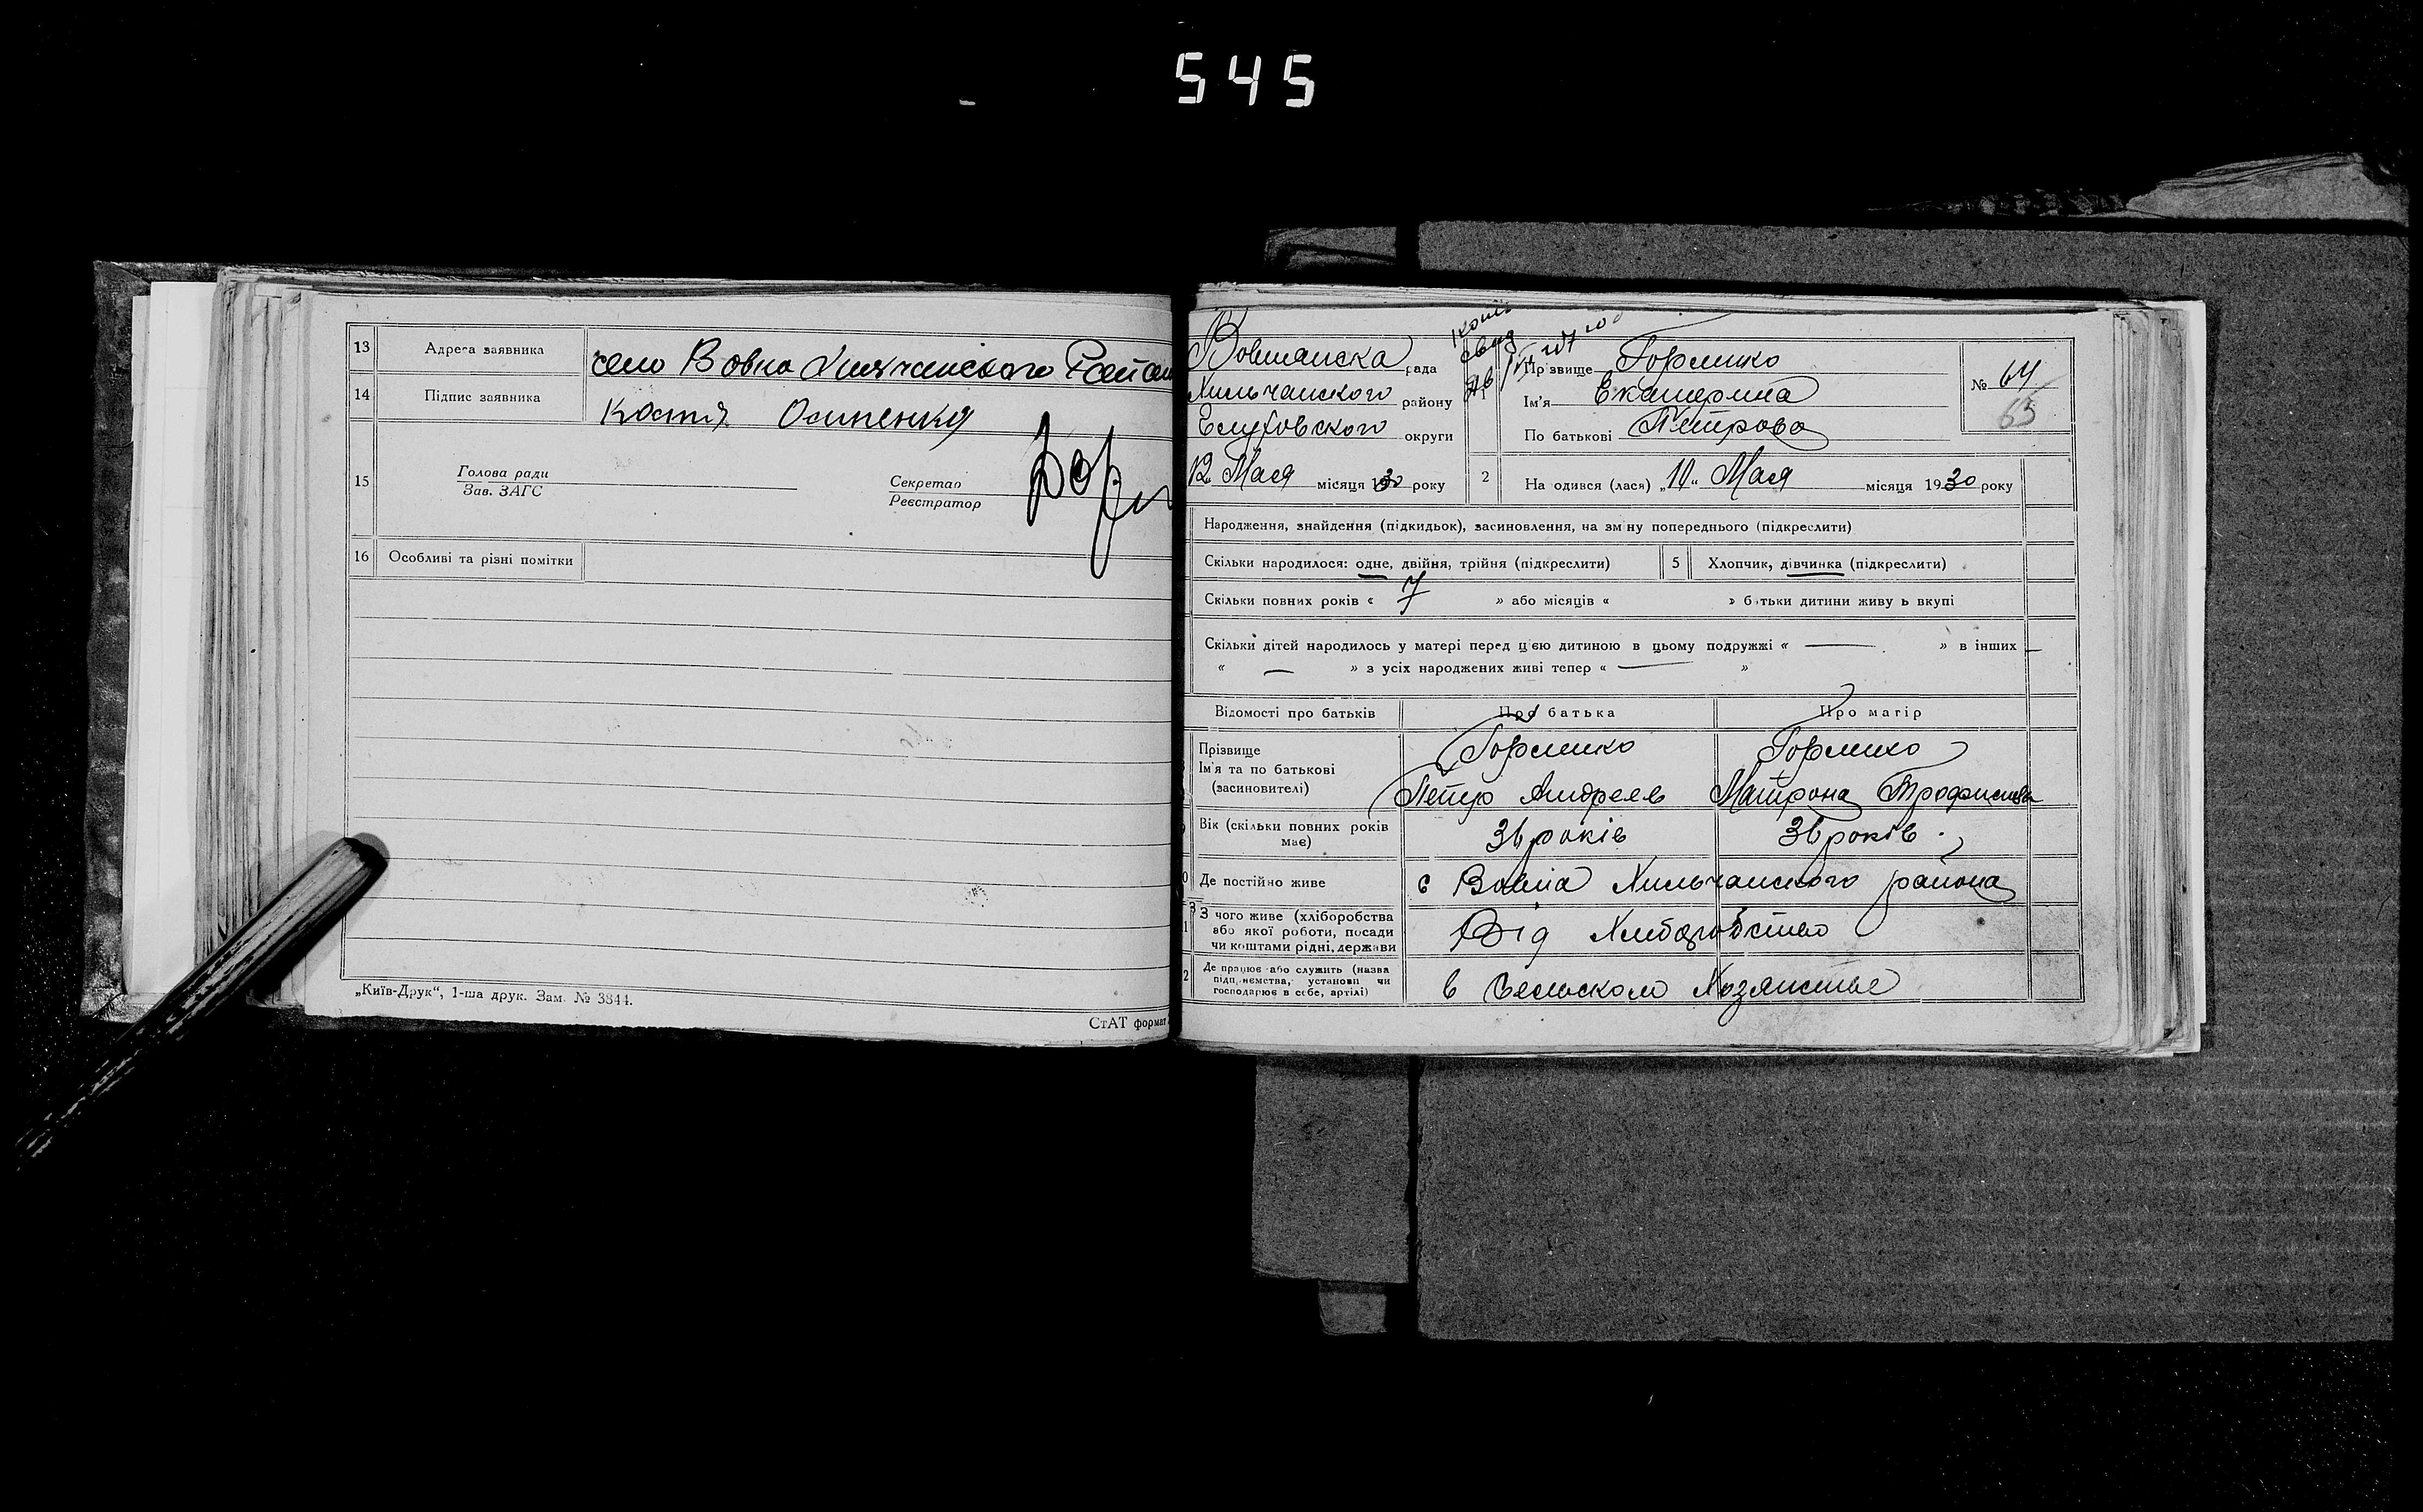 545
13 Адреса заявника село Вовна Хильчанського Район
14 Підпис заявника Костя Осипенко
15 Голова ради
Зав. ЗАГС
Секретар
Реєстратор
16 Особливі та різні помітки
„Київ-Друк“, 1-ша друк. Зам. № 3844.
СтАТ формат
Вовнанска рада
Хильчанского району
Глуховского округи
12 Мася місяця 1930 року
1 Прізвище Горлико
Ім'я Екатерина
По батькові Петрова
№ 64
63
2 На одився (лася) „10“ Мася місяця 1930 року
Народження, знайдення (підкидьок), засиновлення, на зміну попереднього (підкреслити)
Скільки народилося: одне, двійня, трійня (підкреслити) 5 Хлопчик, дівчинка (підкреслити)
Скільки повних років « 7 » або місяців « » батьки дитини живуть вкупі
Скільки дітей народилось у матері перед цією дитиною в цьому подружжі « — » в інших
« — » з усіх народжених живі тепер « — »
Відомості про батьків Про батька Про матір
Прізвище Горлико Горлико
Ім'я та по батькові
(засиновителі) Петр Андреев Матрона Трофимова
Вік (скільки повних років має) 36 років 36 років
Де постійно живе с Вовна Хильчанского района
З чого живе (хліборобства
або якої роботи, посади
чи коштами рідні, держави Від Хлеборобство
Де працює або служить (назва
підприємства, установи чи
господарює в себе, артілі) в Сельском Хозяистве